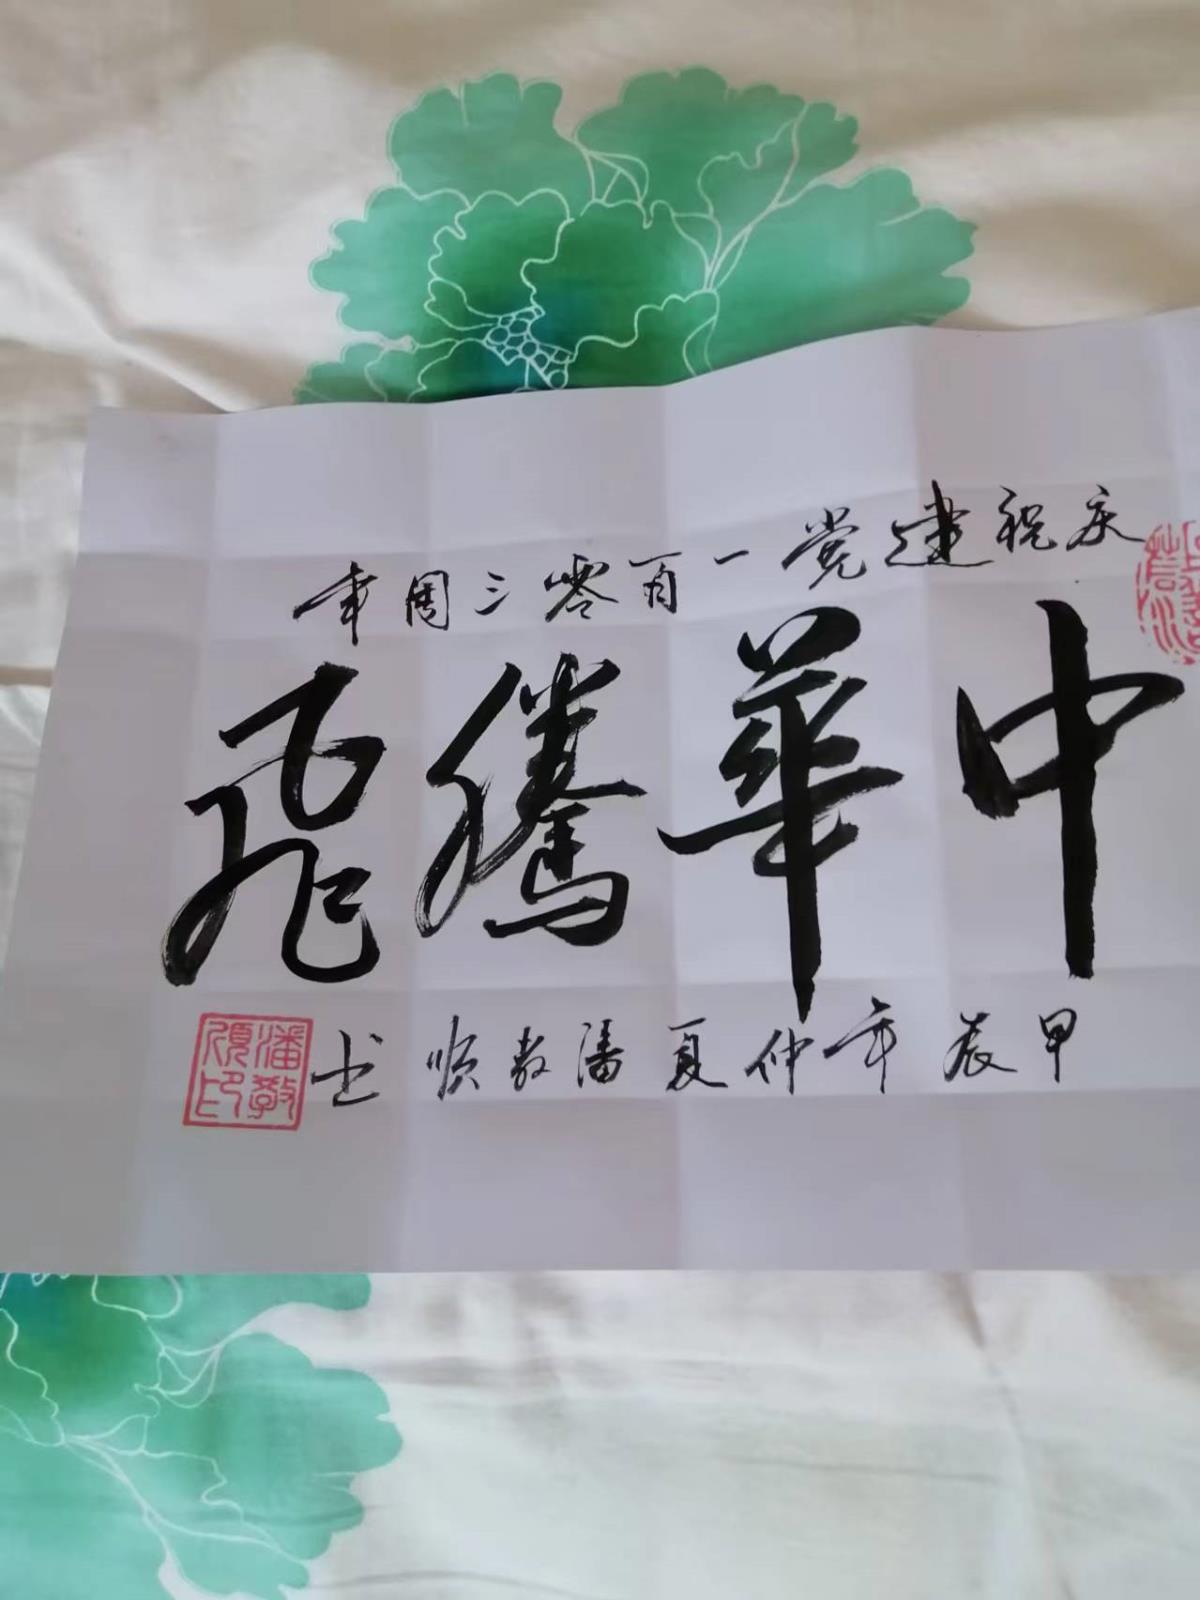 庆祝建党一百零三周年
中華騰飛
甲辰年仲夏潘教顺书
潘教順印